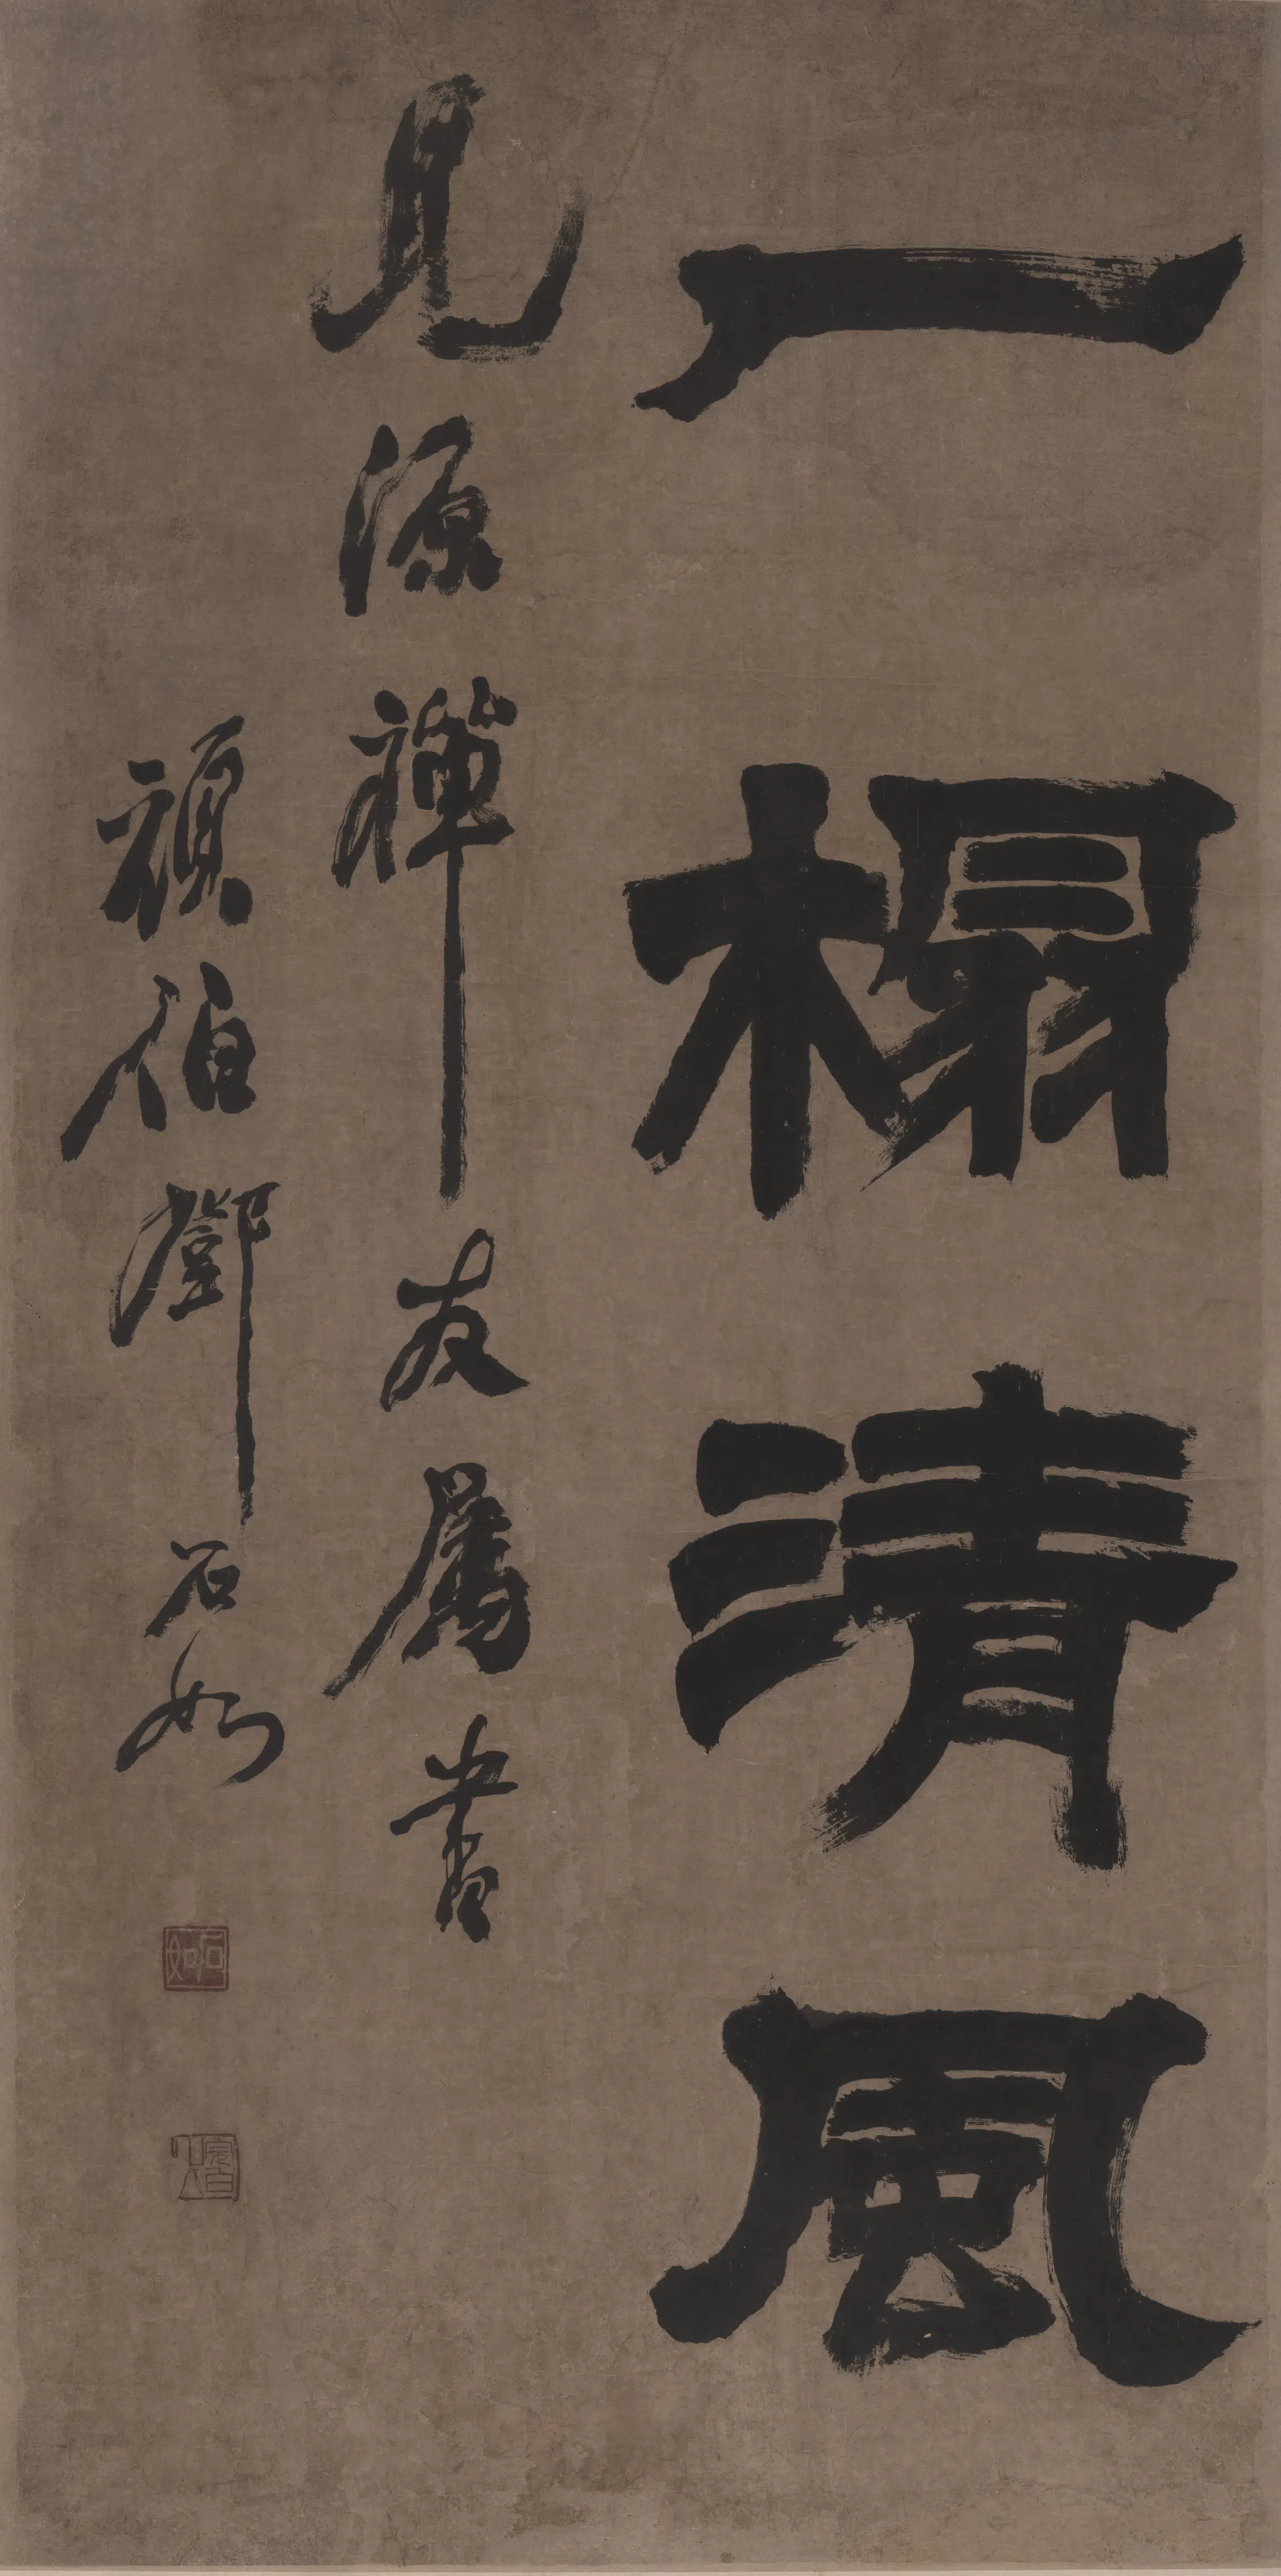 一榻清風
見源禪友屬書
頑伯鄧石如
石如
完白山人